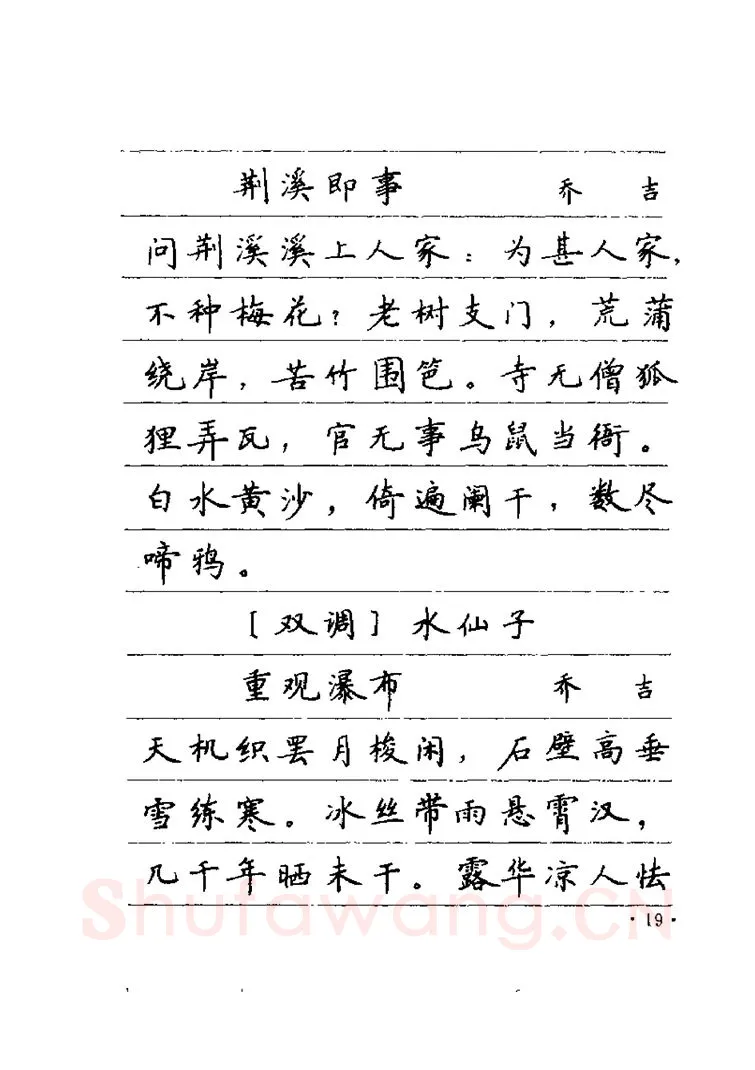 荆溪即事 乔吉
问荆溪溪上人家：为甚人家，
不种梅花？老树支门，荒蒲
绕岸，苦竹围笆。寺无僧狐
狸弄瓦，官无事乌鼠当衙。
白水黄沙，倚遍阑干，数尽
啼鸦。
［双调］水仙子
重观瀑布 乔吉
天机织罢月梭闲，石壁高垂
雪练寒。冰丝带雨悬霄汉，
几千年晒未干。露华凉人怯
Shufawang.CN
·19·